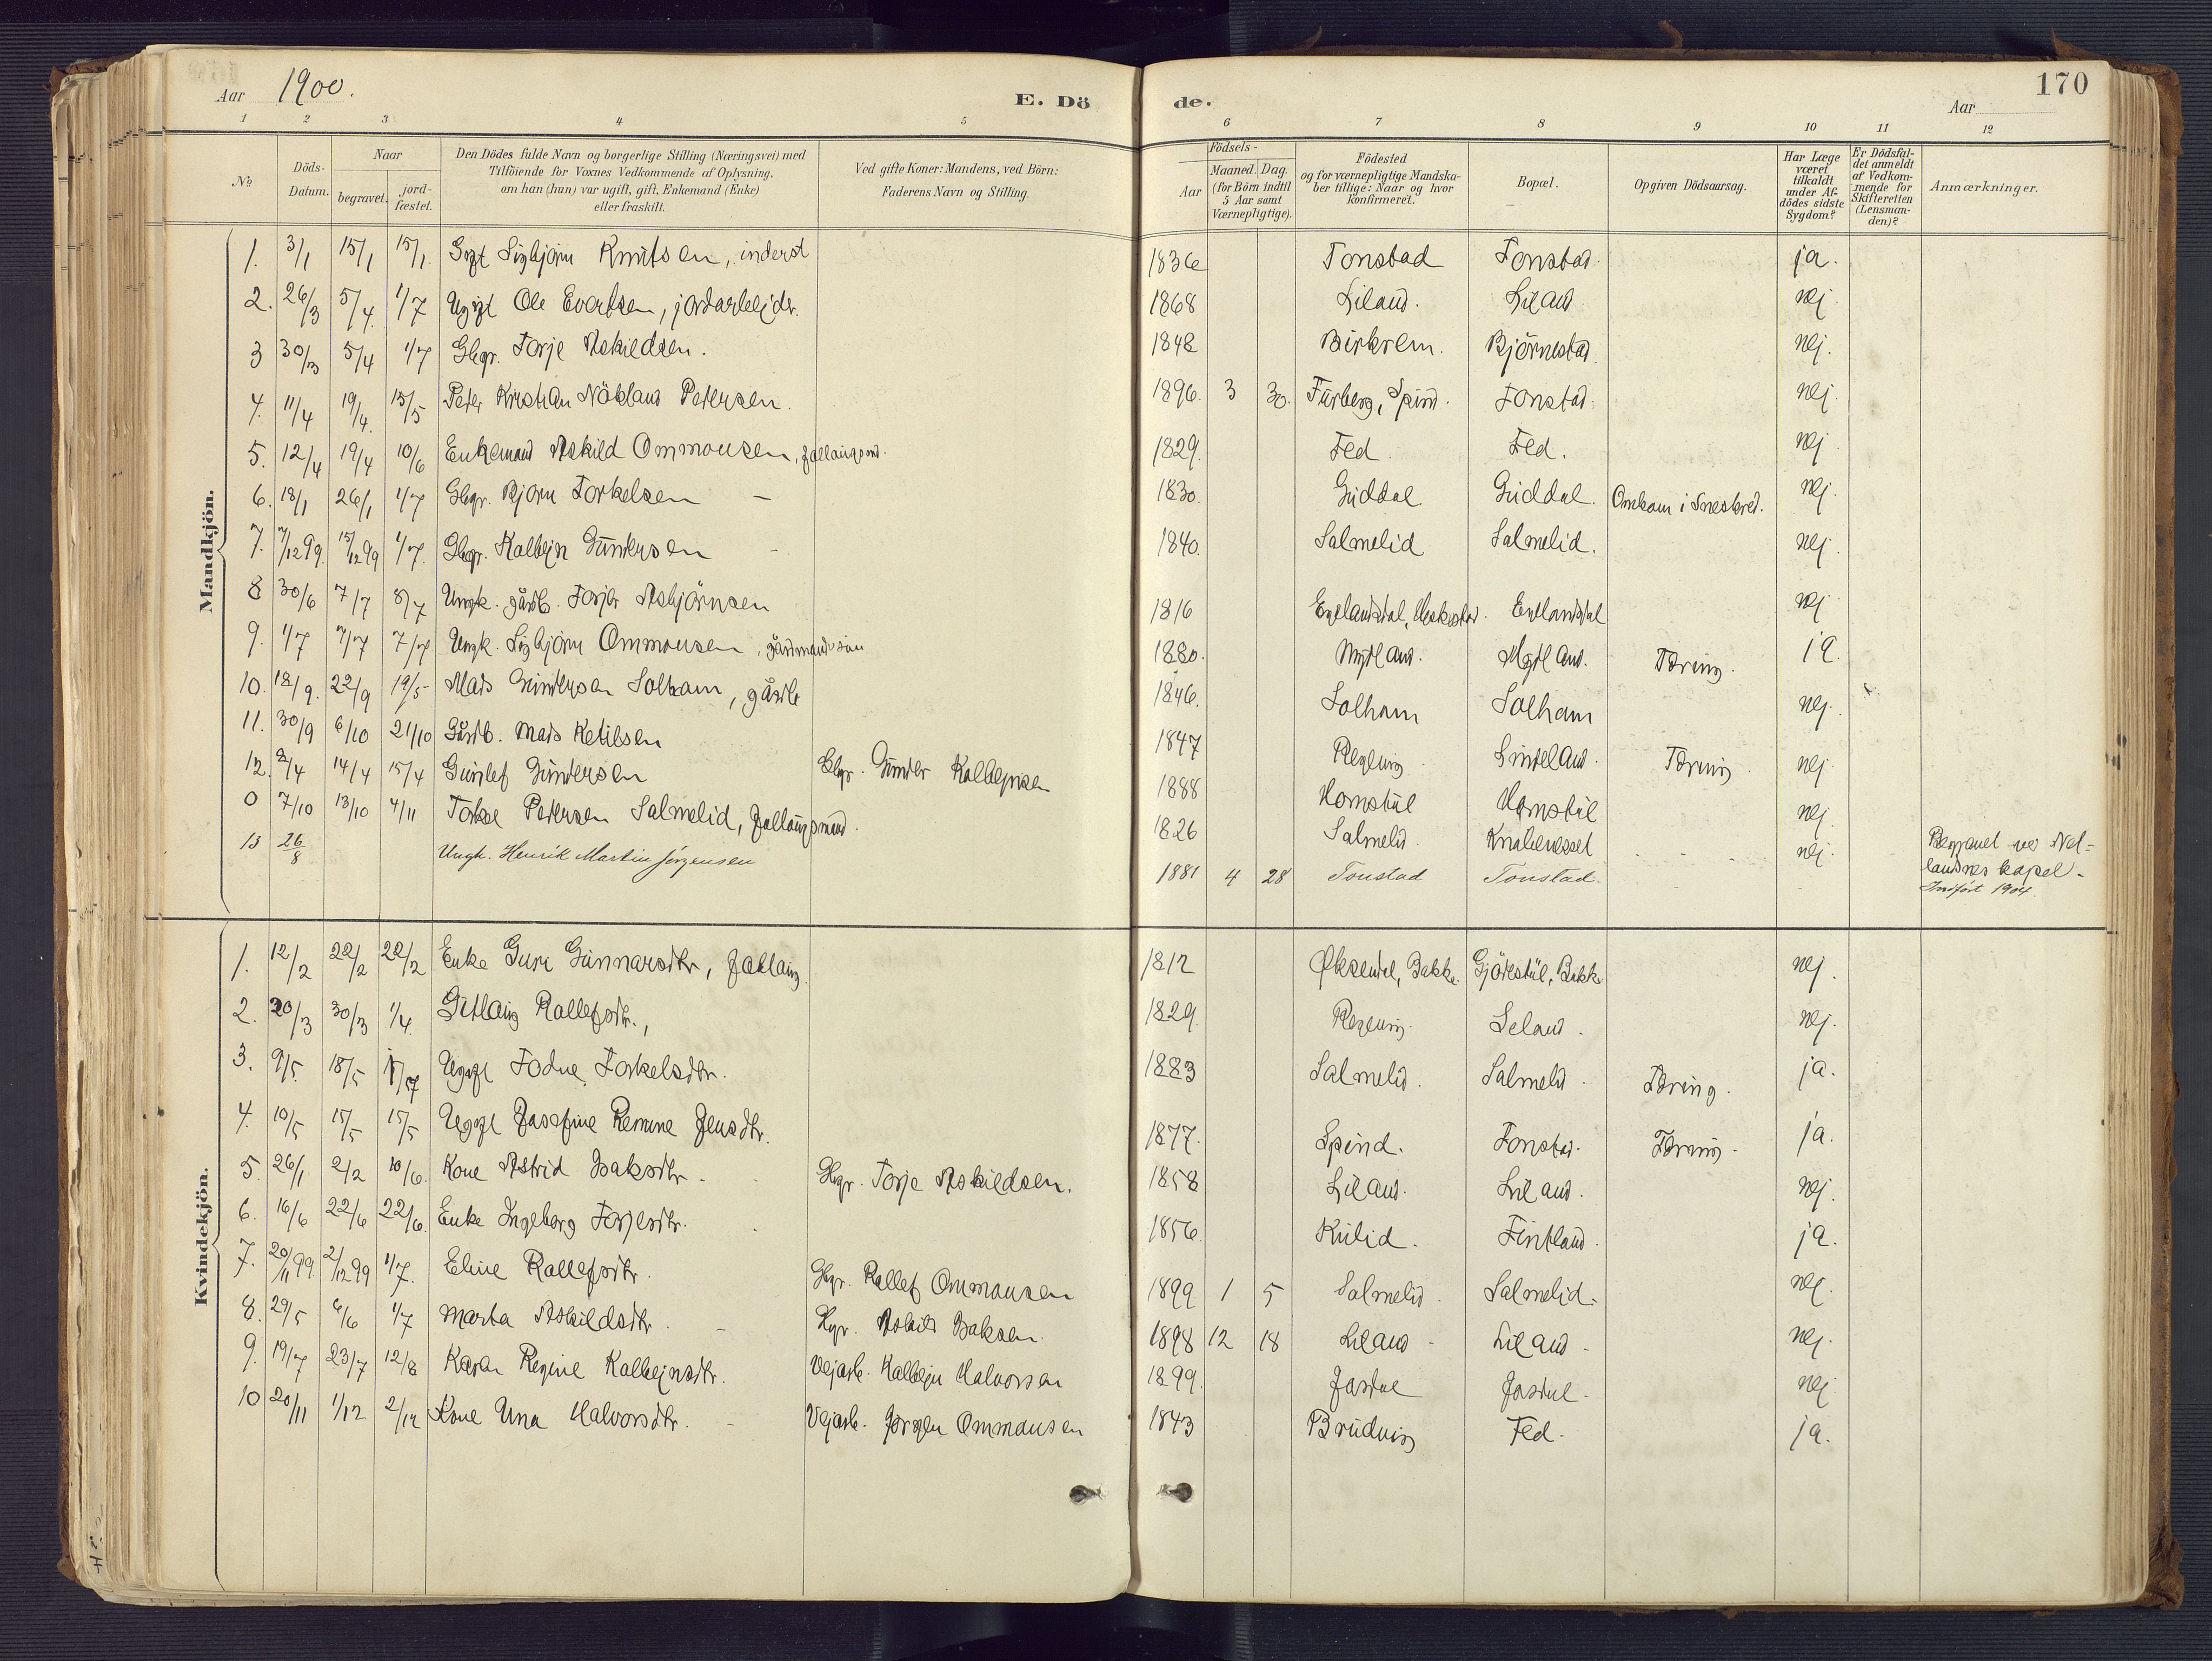 Aar 1900.
E. Dö de.
170
Aar
1 2 3 4 5 6 7 8 9 10 11 12
№
Döds-Datum.
Naar begravet. jordfæstet.
Den Dödes fulde Navn og borgerlige Stilling (Næringsvei) med Tilföiende for Voxnes Vedkommende af Oplysning, om han (hun) var ugift, gift, Enkemand (Enke) eller fraskilt.
Ved gifte Koner: Mandens, ved Börn: Faderens Navn og Stilling.
Födsels- Aar Maaned. Dag. (for Börn indtil 5 Aar samt Værnepligtige).
Födested og for værnepligtige Mandskaber tillige: Naar og hvor konfirmeret.
Bopæl.
Opgiven Dödsaarsag.
Har Læge været tilkaldt under Afdödes sidste Sygdom?
Er Dödsfaldet anmeldt af Vedkommende for Skifteretten (Lensmanden)?
Anmærkninger.
Mandkjön.
1. 3/1 15/1 15/1. Gift Sigbjörn Knutsen, inderst 1836 Tonstad Tonstad. ja.
2. 26/3 5/4. 1/7 Ugift Ole Evertsen, jordarbejdr. 1868 Liland. Liland nej.
3 30/3 5/4 1/7 Gbgr. Torje Askildsen. 1848 Birkrem. Björnestad. nej.
4. 11/4 19/4. 15/5 Peter Kristian Nökland Petersen. 1896. 3 30. Furberg, Spind. Tonstad. nej.
5. 12/4 19/4 10/6 Enkemand Askild Ommonsen, 1829. Fed. Fed. nej
6. 18/1 26/1 1/7 Gbgr. Bjørn Torkelsen – 1830. Guddal Guddal. Omkom i Sneskred. nej.
7. 7/12 99. 15/12 99 1/7. Gbgr. Kolbejn Gundersen - 1840. Salmelid Salmelid. nej.
8 30/6 7/7 8/7 Ungk. gårdb. Torjer Asbjörnsen 1816 Eglandsdal, Heskestad. Eglandsdal nej
9. 1/7 7/7 7/7 Ungk. Sigbjørn Ommonsen, gårdmandssön 1880. Mydland. Mydland. Tæring. ja.
10. 18/9. 22/9 19/5 Mads Gundersen Solham, gårdb 1846. Solham Solham nej.
11. 30/9 6/10 21/10 Gårdb. Mads Ketilsen 1847 Regeling Sinteland. Tæring. nej.
12. 2/4 14/4 15/4 Gunlef Gundersen Gbgr. Gunder Kolbejnsen 1888 Homstöl Homstöl nej.
0 7/10 13/10 4/11 Torkel Petersen Salmelid, 1826 Salmelid. Knabenesset nej. Begravet ved Netlandsnes kapel.
13 26/8 Ungk. Henrik Martin Jörgensen 1881 4 28 Tonstad Tonstad. Indfört 1904.
Kvindekjön.
1. 12/2 22/2 22/2 Enke Guri Gunnarsdtr, 1812 Øksendal, Bakke. Gjörestöl, Bakke nej.
2. 20/3 30/3 1/4. Gitlaug Rallefsdtr., 1829. Regeling. Leland. nej.
3. 9/5. 18/5 Ugift Todne Torkelsdtr. 1883 Salmelid. Salmelid. Tæring. ja.
4. 10/5 15/5 15/5 Ugift Josefine Remine Jensdtr. 1877. Spind. Tonstad. Tæring. ja.
5. 26/1 2/2 10/6. Kone Astrid Isaksdtr. Gbgr. Torje Askildsen. 1858 Liland. Liland. nej.
6. 16/6 22/6 22/6. Enke Ingeborg Torjesdtr. 1856. Kulid. Fintland. ja.
7. 20/11 99. 2/12 99 1/7. Eline Rallefsdtr. Gbgr. Rallef Ommonsen 1899 1 5 Salmelid. Salmelid. nej.
8. 29/5 6/6 1/7 Marta Askildsdtr. Gbgr. Askild Isaksen. 1898 12 18 Liland Liland nej.
9. 19/7 23/7 12/8 Karen Regine Kolbejnsdtr. Vejarb. Kolbejn Halvorsen 1899. Josdal Josdal. nej
10 20/11 1/12 2/12 Kone Una Halvorsdtr. Vejarb. Jörgen Ommonsen 1843 Brudvig Fed. ja.